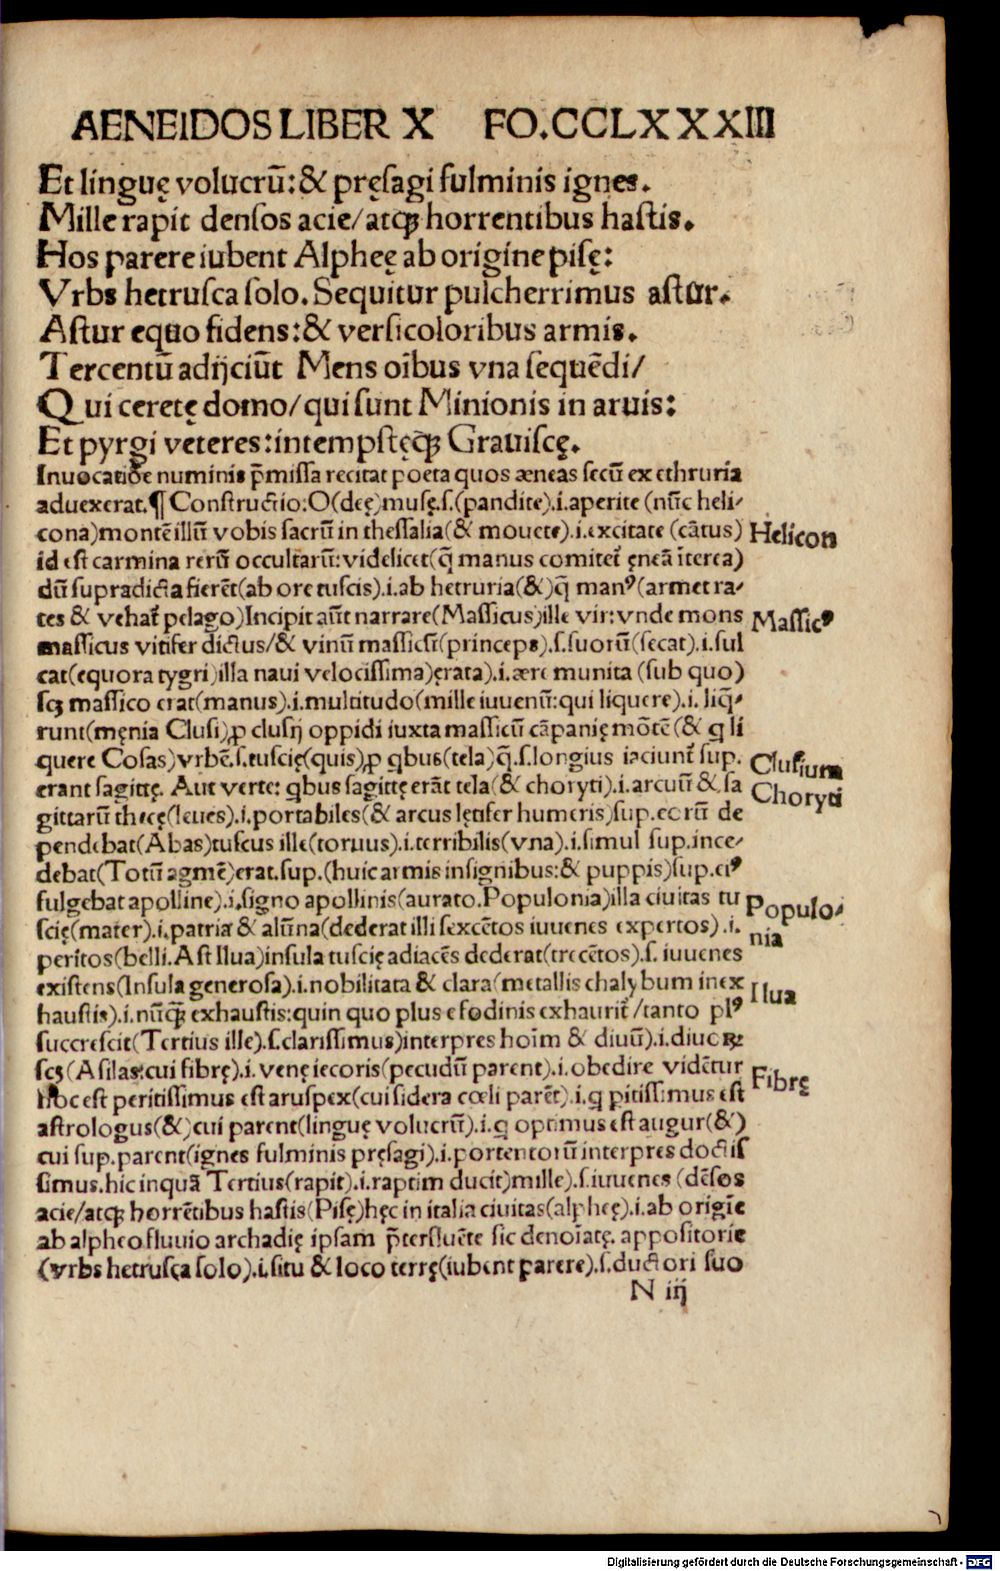 AENEIDOS LIBER X FO.CCLXXXXIII
Et linguę volucrū:& pręsagi fulminis ignes.
Mille rapit densos acie/atqꝫ horrentibus hastis.
Hos parere iubent Alpheę ab origine pisę:
Vrbs hetrusca solo. Sequitur pulcherrimus astur.
Astur equo fidens:& versicoloribus armis.
Tercentū adijciūt Mens oībus vna sequēdi/
Qui ceretę domo/qui sunt Minionis in aruis:
Et pyrgi veteres:intempstęqꝫ Grauiscę.
Inuocatiōe numinis p̄missa recitat poeta quos æneas secū ex ethruria
aduexerat.¶ Constructio:O(deę)musę.s.(pandite).i.aperite (nūc heli-
cona)montē illū vobis sacrū in thessalia(& mouete).i.excitate (cātus)
id est carmina rerū occultarū:videlicet(q̄ manus comitet̄ ęneā īterea)
dū supradicta fierēt(ab ore tuscis).i.ab hetruria(&)q̄ manꝰ(armet ra-
tes & vehat̄ pelago)Incipit aūt narrare(Massicus)ille vir:vnde mons
massicus vitifer dictus/& vinū massicū(princeps).s.suorū(secat).i.sul
cat(equora tygri)illa naui velocissima)ęrata).i.ære munita (sub quo)
scꝫ massico erat(manus).i.multitudo(mille iuuenū:qui liquere).i. liq̄-
runt(męnia Clusi)ꝓ clusij oppidi iuxta massicū cāpanię mōtē(& q li
quere Cosas)vrbē.s.tuscię(quis)ꝓ qbus(tela)q̄.s.longius iaciunt̄ sup.
erant sagittę. Aut verte: qbus sagittę erāt tela(& choryti).i.arcuū & sa
gittarū thecę(leues).i.portabiles(& arcus lętifer humeris)sup.eorū de
pendebat(Abas)tuscus ille(toruus).i.terribilis(vna).i.simul sup.ince-
debat(Totū agmē)erat.sup.(huic armis insignibus:& puppis)sup.eiꝰ
fulgebat apolline).i.signo apollinis(aurato.Populonia)illa ciuitas tu
scię(mater).i.patria & alūna(dederat illi sexcētos iuuenes expertos) .i.
peritos(belli.Ast Ilua)insula tuscię adiacēs dederat(trecētos).s. iuuenes
existens(Insula generosa).i.nobilitata & clara(metallis chalybum inex
haustis).i.nūqꝫ exhaustis:quin quo plus e fodinis exhaurit̄/tanto plꝰ
succrescit(Tertius ille).s.clarissimus)interpres hoīm & diuū).i.diuoꝝ
scꝫ(Asilas:cui fibrę).i.venę iecoris(pecudū parent).i.obedire vidētur
hoc est peritissimus est aruspex(cui sidera cœli parēt).i.q ꝑitissimus est
astrologus(&)cui parent(linguę volucrū).i.q optimus est augur(&)
cui sup.parent(ignes fulminis pręsagi).i.portentorū interpres doctis
simus.hic inquā Tertius(rapit).i.raptim ducit)mille).s.iuuenes (dēsos
acie/atqꝫ horrētibus hastis(Pisę)hęc in italia ciuitas(alpheę).i.ab origīe
ab alpheo fluuio archadię ipsam p̄terfluēte sic denoīatę. appositorie
(vrbs hetrusca solo).i.situ & loco terrę(iubent parere).s.ductori suo
N iij
Helicon
Massicꝰ
Clusium
Choryti
Populo-
nia
Ilua
Fibrę
Digitalisierung gefördert durch die Deutsche Forschungsgemeinschaft - DFG